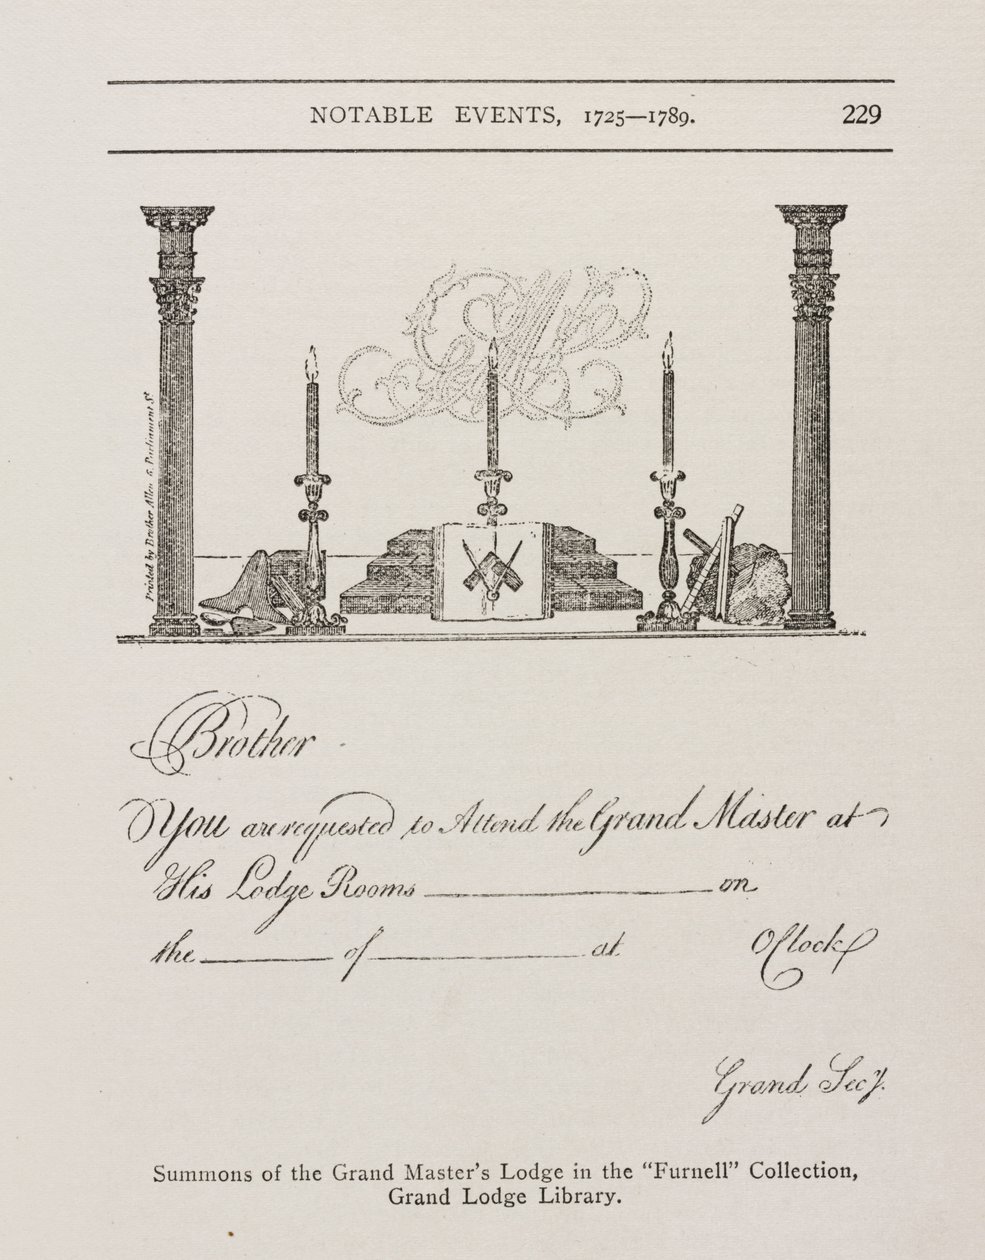 NOTABLE EVENTS, 1725—1789. 229
Printed by Brother Allen 6. Parliament St
Brother
You are requested to Attend the Grand Master at
His Lodge Rooms ____________ on
the ______ of __________ at O'Clock
Grand Secy.
Summons of the Grand Master's Lodge in the "Furnell" Collection,
Grand Lodge Library.